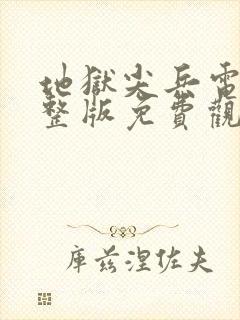 地獄尖兵電
整版免費觀
庫茲涅佐夫